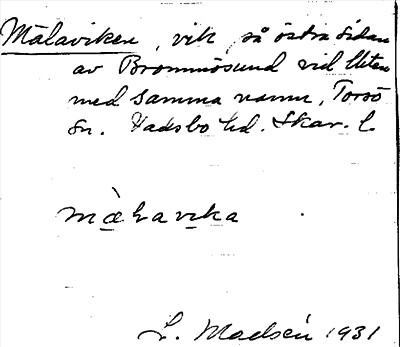 Målaviken, vik, på östra sidan
av Brommösund vid Uten
med samma namn, Torsö
Sn. Vadsbo hd. Skar. l.
màlavika
L. Madsén 1931